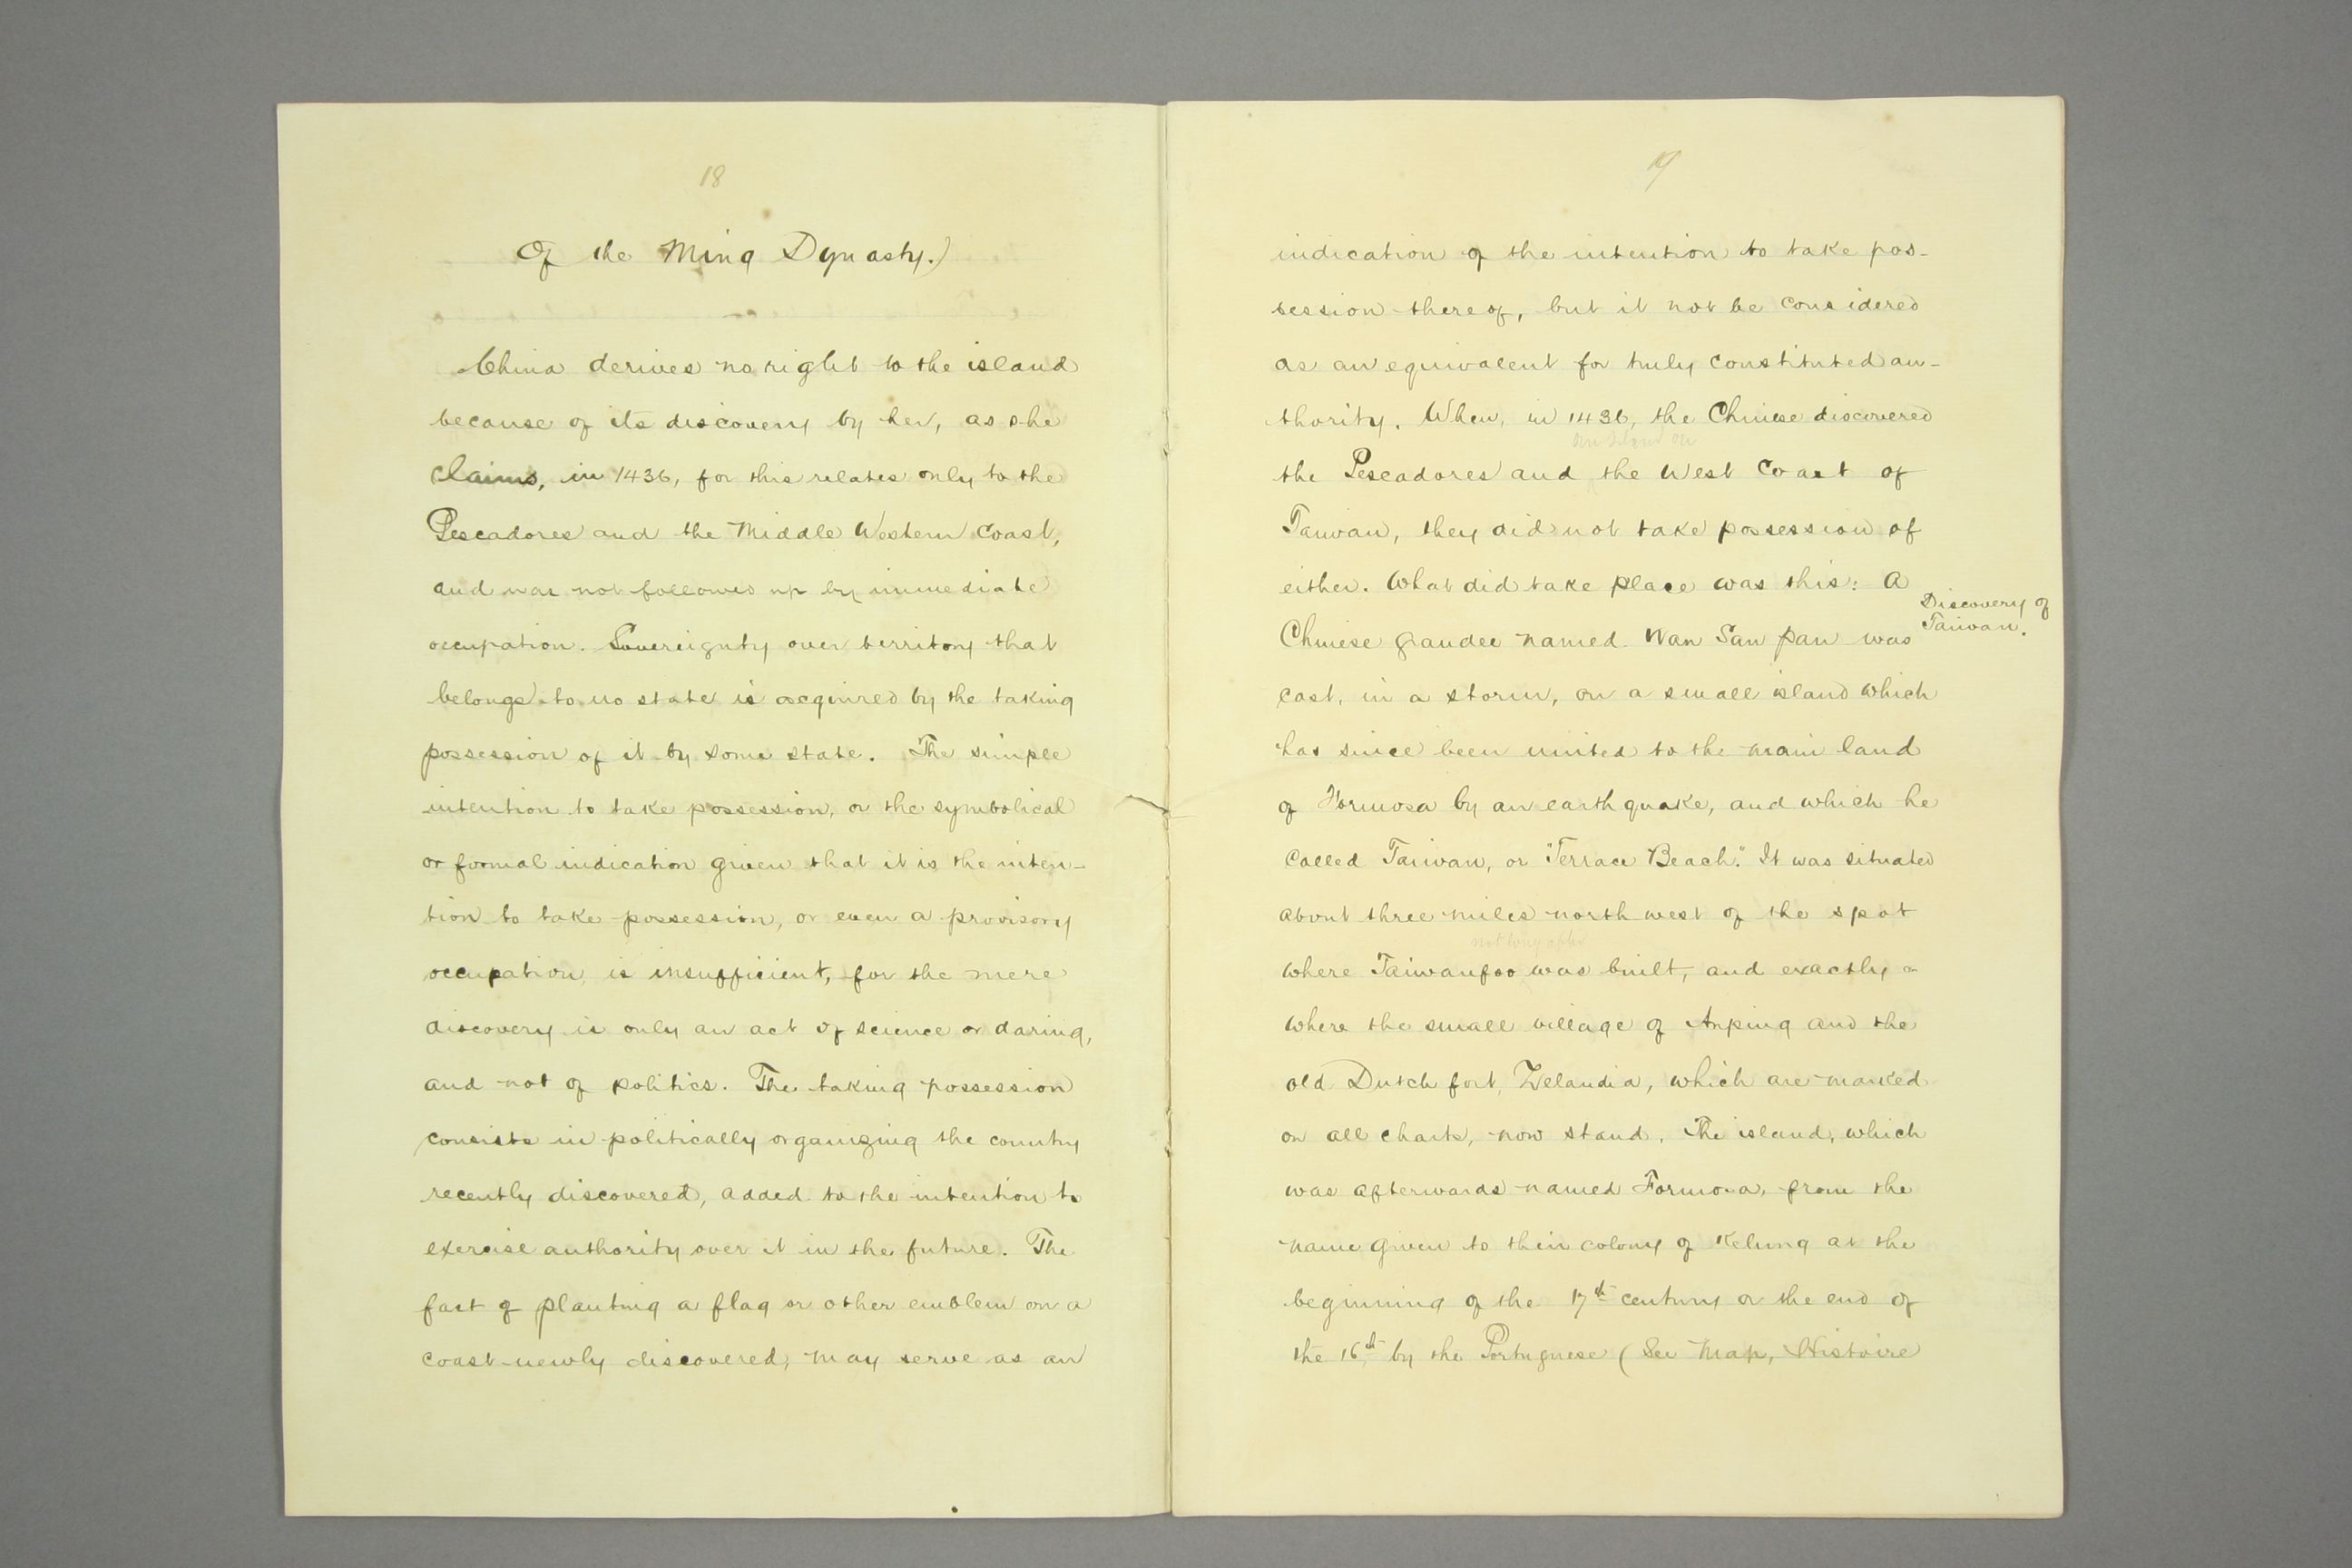 18
Of the Ming Dynasty.)
China derives no right to the island
because of its discovery by her, as she
claims, in 1436, for this relates only to the
Pescadores and the Middle Western Coast,
and was not followed up by immediate
occupation. Sovereignty over territory that
belongs to no state is acquired by the taking
possession of it by some state. The simple
intention to take possession, or the symbolical
or formal indication given that it is the inten-
tion to take possession, or even a provisory
occupation, is insufficient, for the mere
discovery is only an act of science or daring,
and not of politics. The taking possession
consists in politically organizing the country
recently discovered, added to the intention to
exercise authority over it in the future. The
fact of planting a flag or other emblem on a
coast newly discovered, may serve as an
19
indication of the intention to take pos-
session thereof, but it not be considered
as an equivalent for truly constituted au-
thority. When, in 1436, the Chinese discovered
an island on
the Pescadores and the West Coast of
Taiwan, they did not take possession of
either. What did take place was this: A
Discovery of
Taiwan.
Chinese grandee named Wan San pau was
cast, in a storm, on a small island which
has since been united to the main land
of Formosa by an earthquake, and which he
called Taiwan, or "Terrace Beach." It was situated
about three miles north west of the spot
not long after
where Taiwanfoo was built, and exactly
where the small village of Anping and the
old Dutch fort, Zelandia, which are marked
on all charts, now stand. The island, which
was afterwards named Formosa, from the
name given to their colony of Kelung at the
beginning of the 17th century or the end of
the 16th by the Portuguese (See Map, Histoire